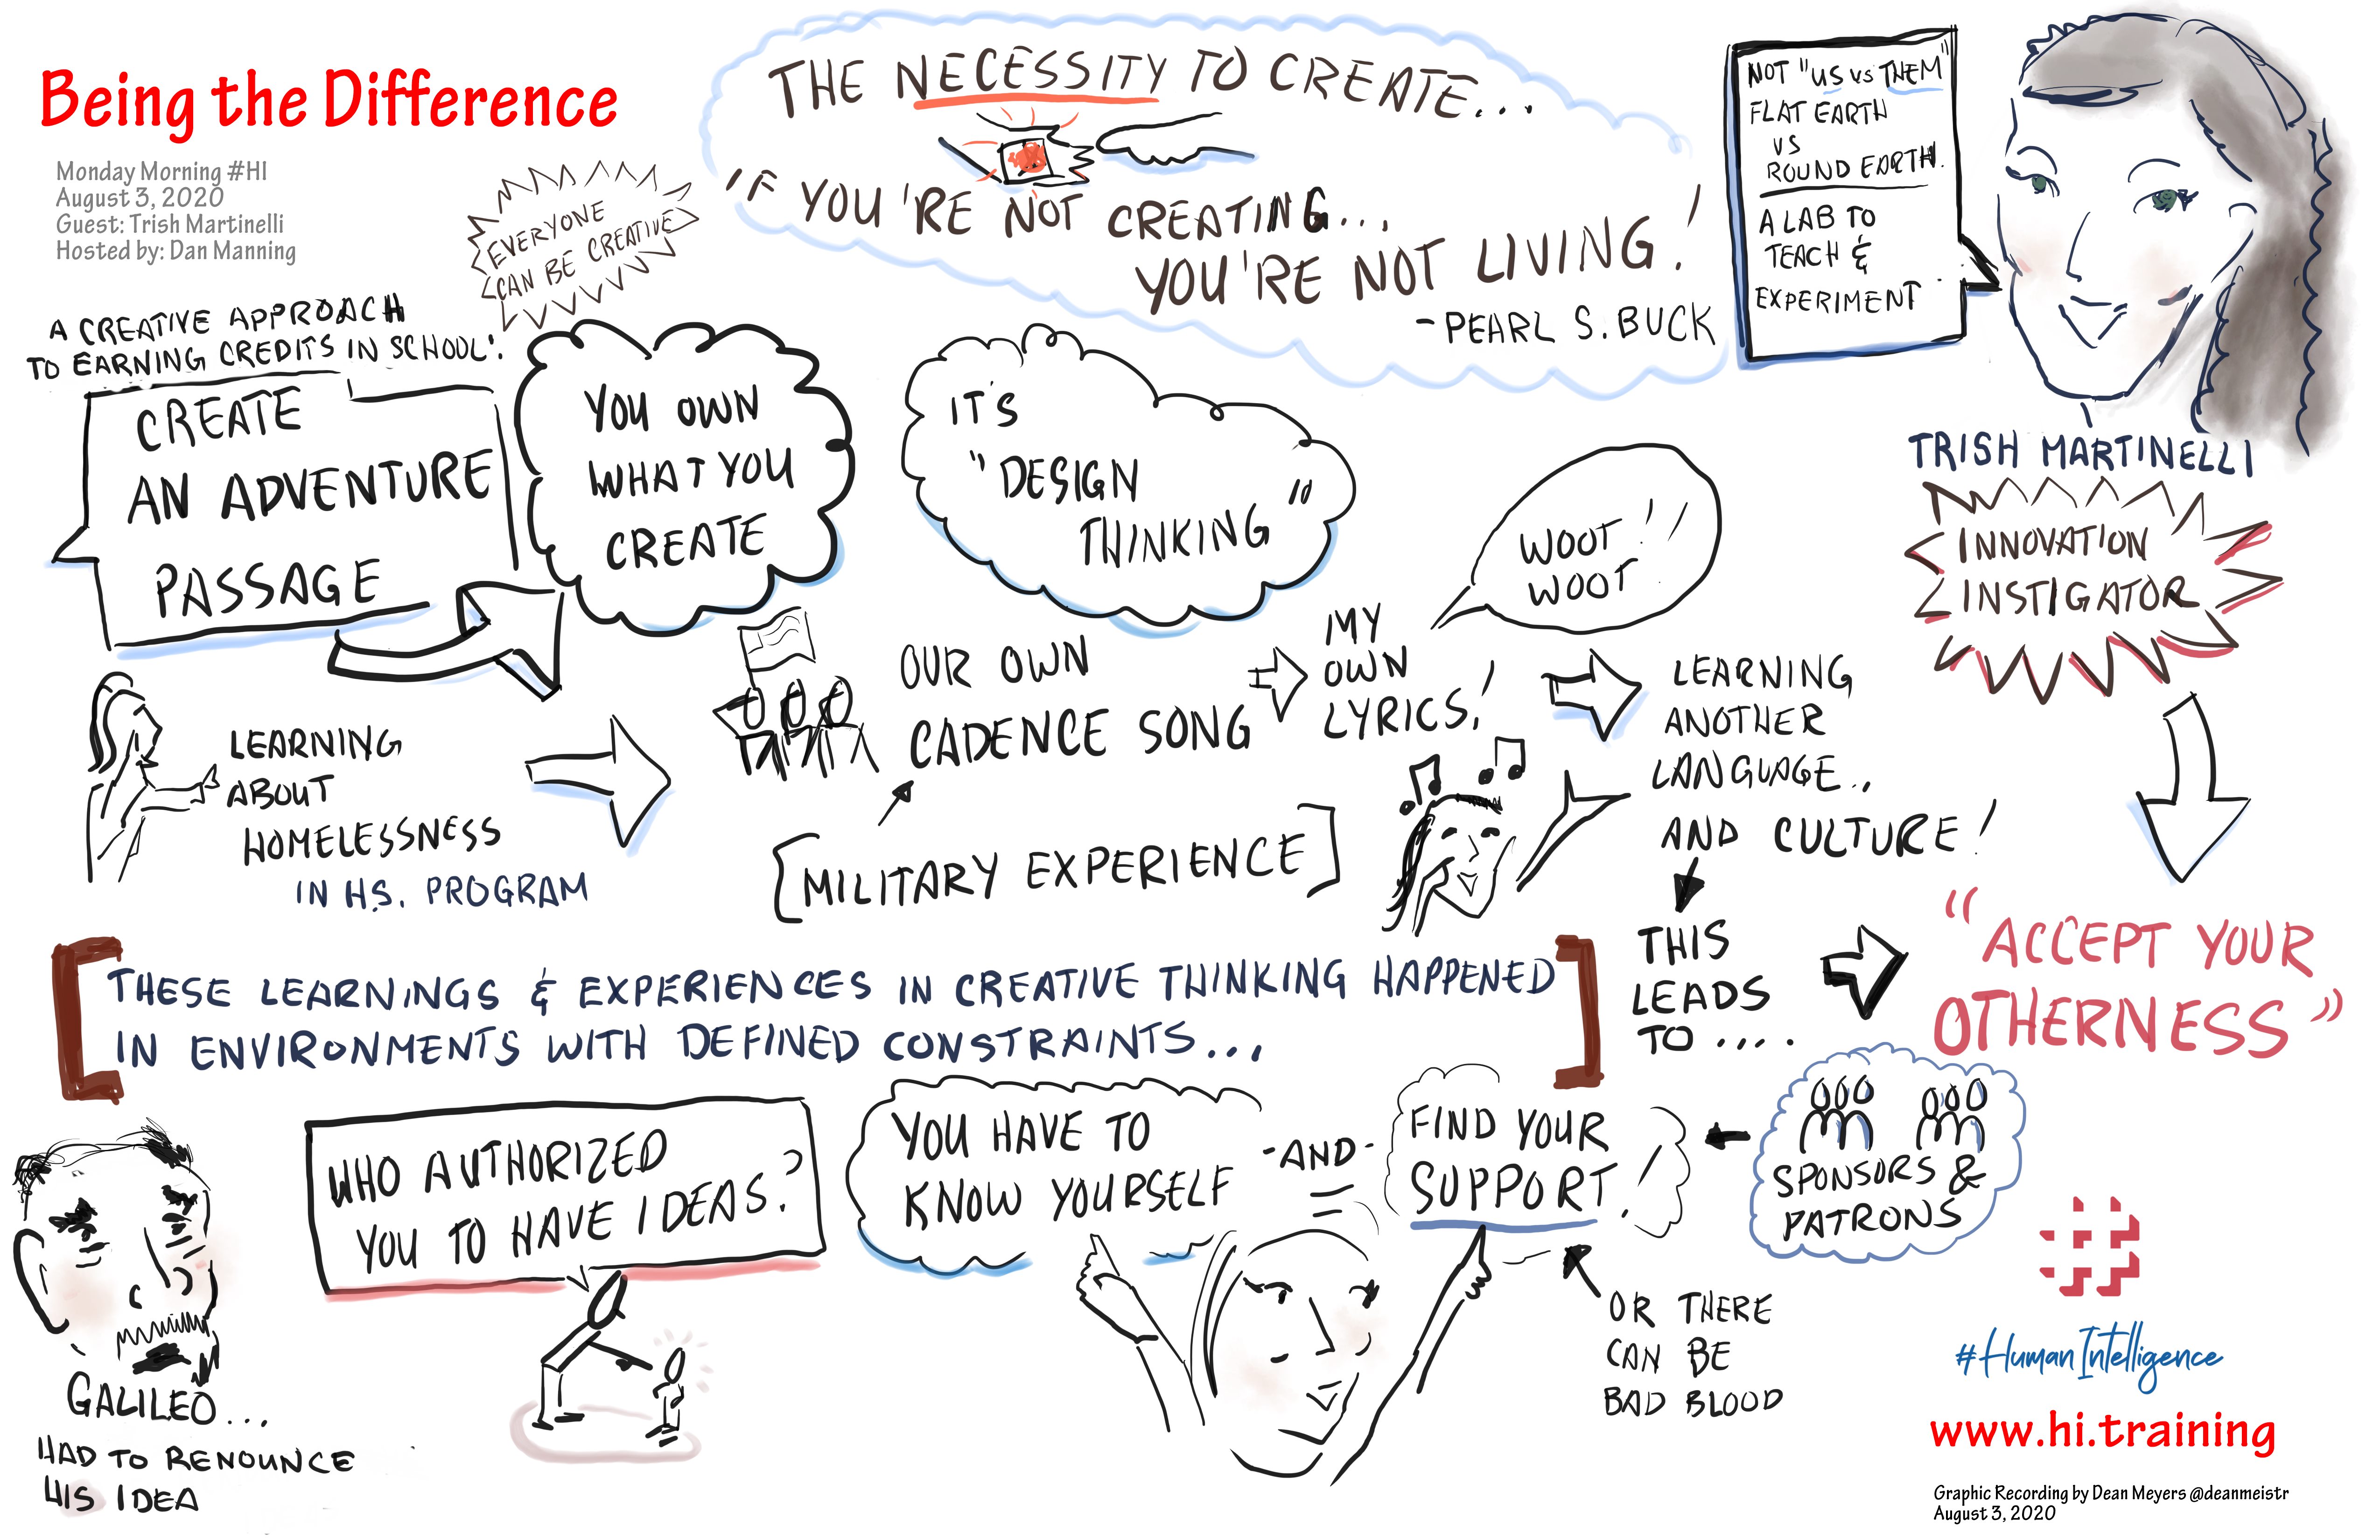 Being the Difference
Monday Morning #HI
August 3, 2020
Guest: Trish Martinelli
Hosted by: Dan Manning
EVERYONE
CAN BE CREATIVE
THE NECESSITY TO CREATE...
IF YOU'RE NOT CREATING...
YOU'RE NOT LIVING!
- PEARL S. BUCK
NOT "US VS THEM"
FLAT EARTH
VS
ROUND EARTH.
A LAB TO
TEACH &
EXPERIMENT
TRISH MARTINELLI
INNOVATION
INSTIGATOR
A CREATIVE APPROACH
TO EARNING CREDITS IN SCHOOL:
CREATE
AN ADVENTURE
PASSAGE
YOU OWN
WHAT YOU
CREATE
IT'S
"DESIGN
THINKING"
WOOT!
WOOT!
LEARNING
ABOUT
HOMELESSNESS
IN H.S. PROGRAM
OUR OWN
CADENCE SONG
[MILITARY EXPERIENCE]
MY
OWN
LYRICS!
LEARNING
ANOTHER
LANGUAGE..
AND CULTURE!
THIS
LEADS
TO....
"ACCEPT YOUR
OTHERNESS"
[THESE LEARNINGS & EXPERIENCES IN CREATIVE THINKING HAPPENED
IN ENVIRONMENTS WITH DEFINED CONSTRAINTS...]
GALILEO...
HAD TO RENOUNCE
HIS IDEA
WHO AUTHORIZED
YOU TO HAVE IDEAS?
YOU HAVE TO
KNOW YOURSELF
-AND-
FIND YOUR
SUPPORT!
SPONSORS &
PATRONS
OR THERE
CAN BE
BAD BLOOD
#
#HumanIntelligence
www.hi.training
Graphic Recording by Dean Meyers @deanmeistr
August 3, 2020